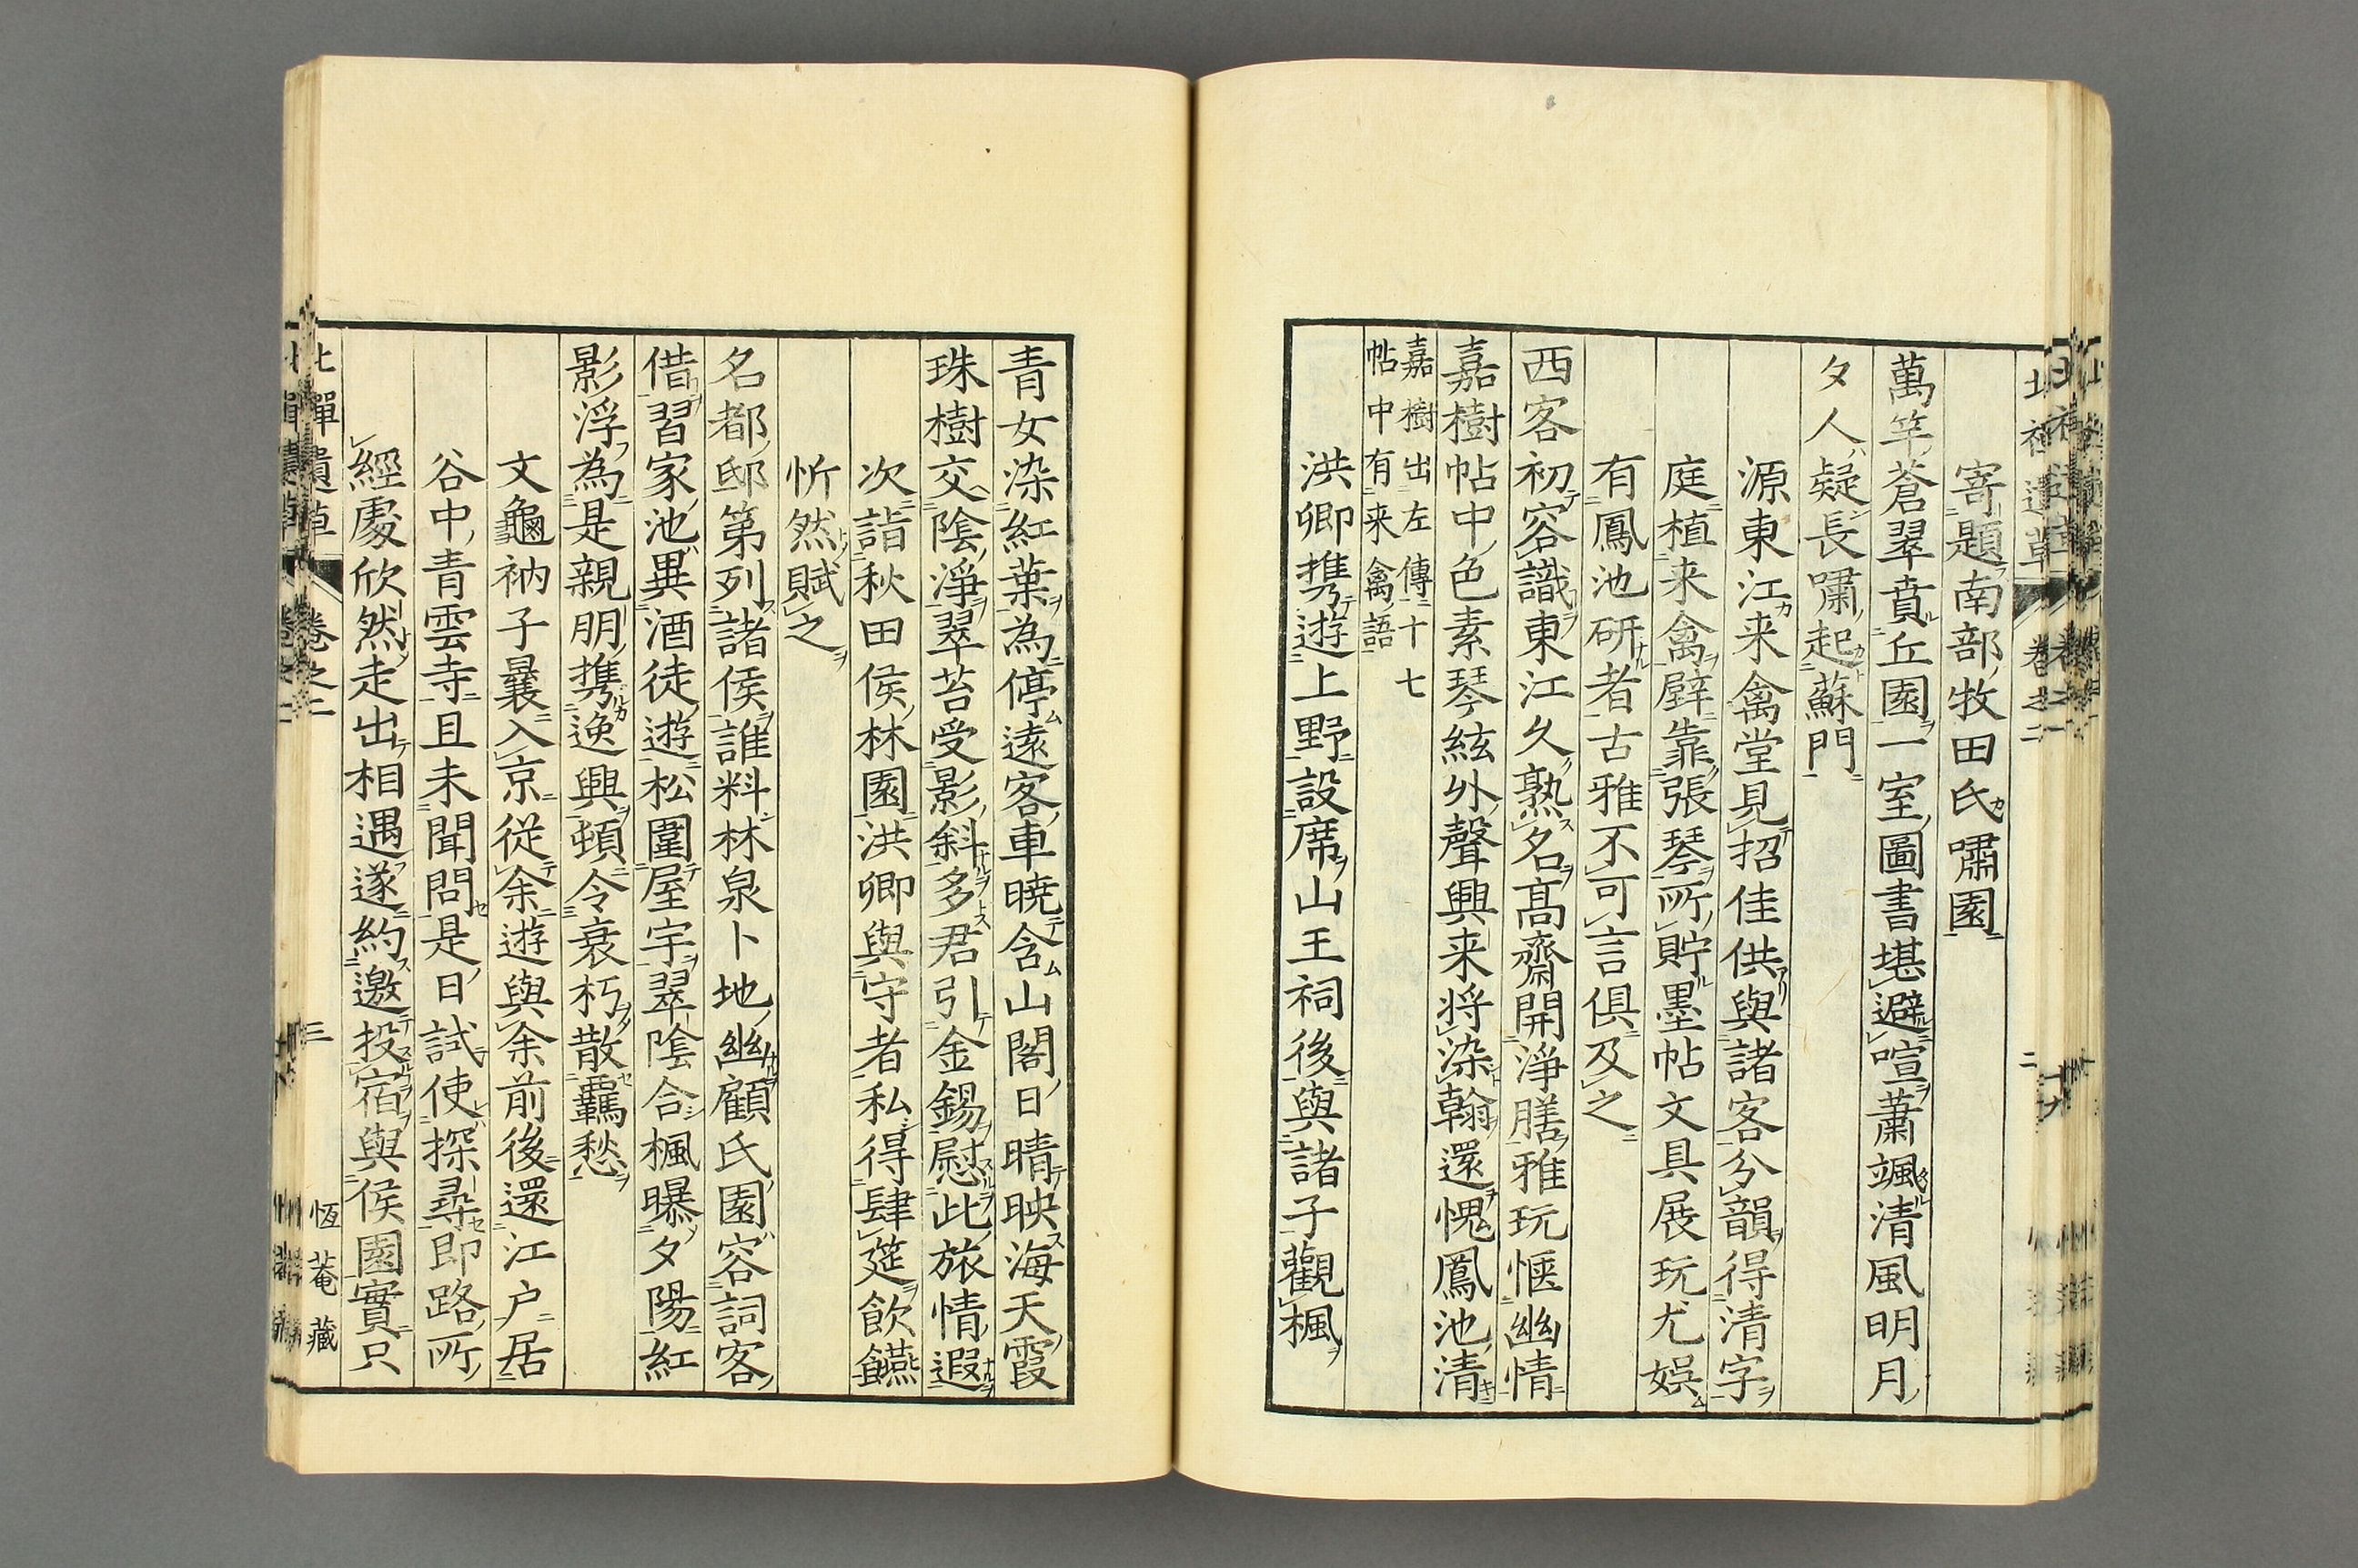 寄題南部牧田氏嘯園
萬竿蒼翠賁丘園一室圖書堪避喧蕭颯清風明月
夕人疑長嘯起蘇門
源東江来禽堂見招佳供與諸客分韻得清字
庭植来禽壁靠張琴所貯墨帖文具展玩尤娯
有鳳池研者古雅不可言俱及之
西客初容識東江久熟名髙齋開淨膳雅玩愜幽情
嘉樹帖中色素琴絃外聲興来将染翰還愧鳳池清
嘉樹出左傳十七
帖中有来禽語
洪卿携遊上野設席山王祠後與諸子觀楓
青女染紅葉為停遠客車曉含山閣日晴映海天霞
珠樹交陰淨翠苔受影斜多君引金錫慰此旅情遐
次詣秋田侯林園洪卿與守者私得肆筵飲饇
忻然賦之
名都邸第列諸侯誰料林泉卜地幽顧氏園容詞客
借習家池異酒徒遊松圍屋宇翠陰合楓曝夕陽紅
影浮為是親朋携逸興頓令衰朽散羈愁
文龜衲子曩入京従余遊與余前後還江户居
谷中青雲寺且未聞問是日試使探尋即路所
經處欣然走出相遇遂約邀投宿與侯園實只
北禪遺草
卷之二
三
恆菴藏